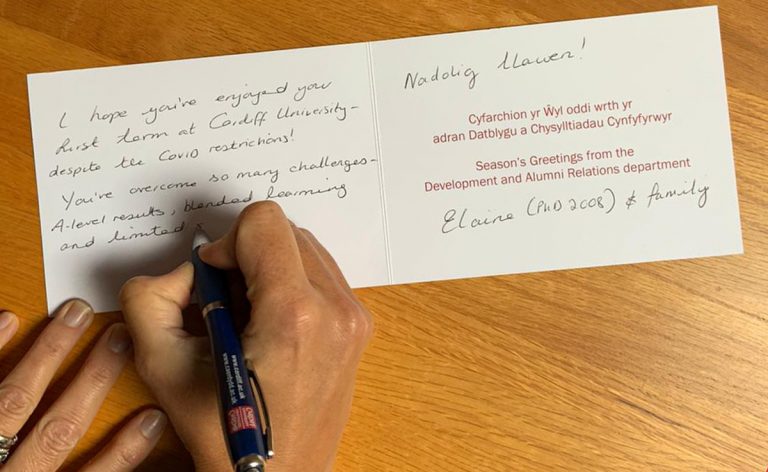 I hope you've enjoyed your
first term at Cardiff University -
despite the Covid restrictions!
You've overcome so many challenges -
A-level results, blended learning
and limited
Nadolig Llawen!
Cyfarchion yr Ŵyl oddi wrth yr
adran Datblygu a Chysylltiadau Cynfyfyrwyr
Season's Greetings from the
Development and Alumni Relations department
Elaine (PhD 2008) & family